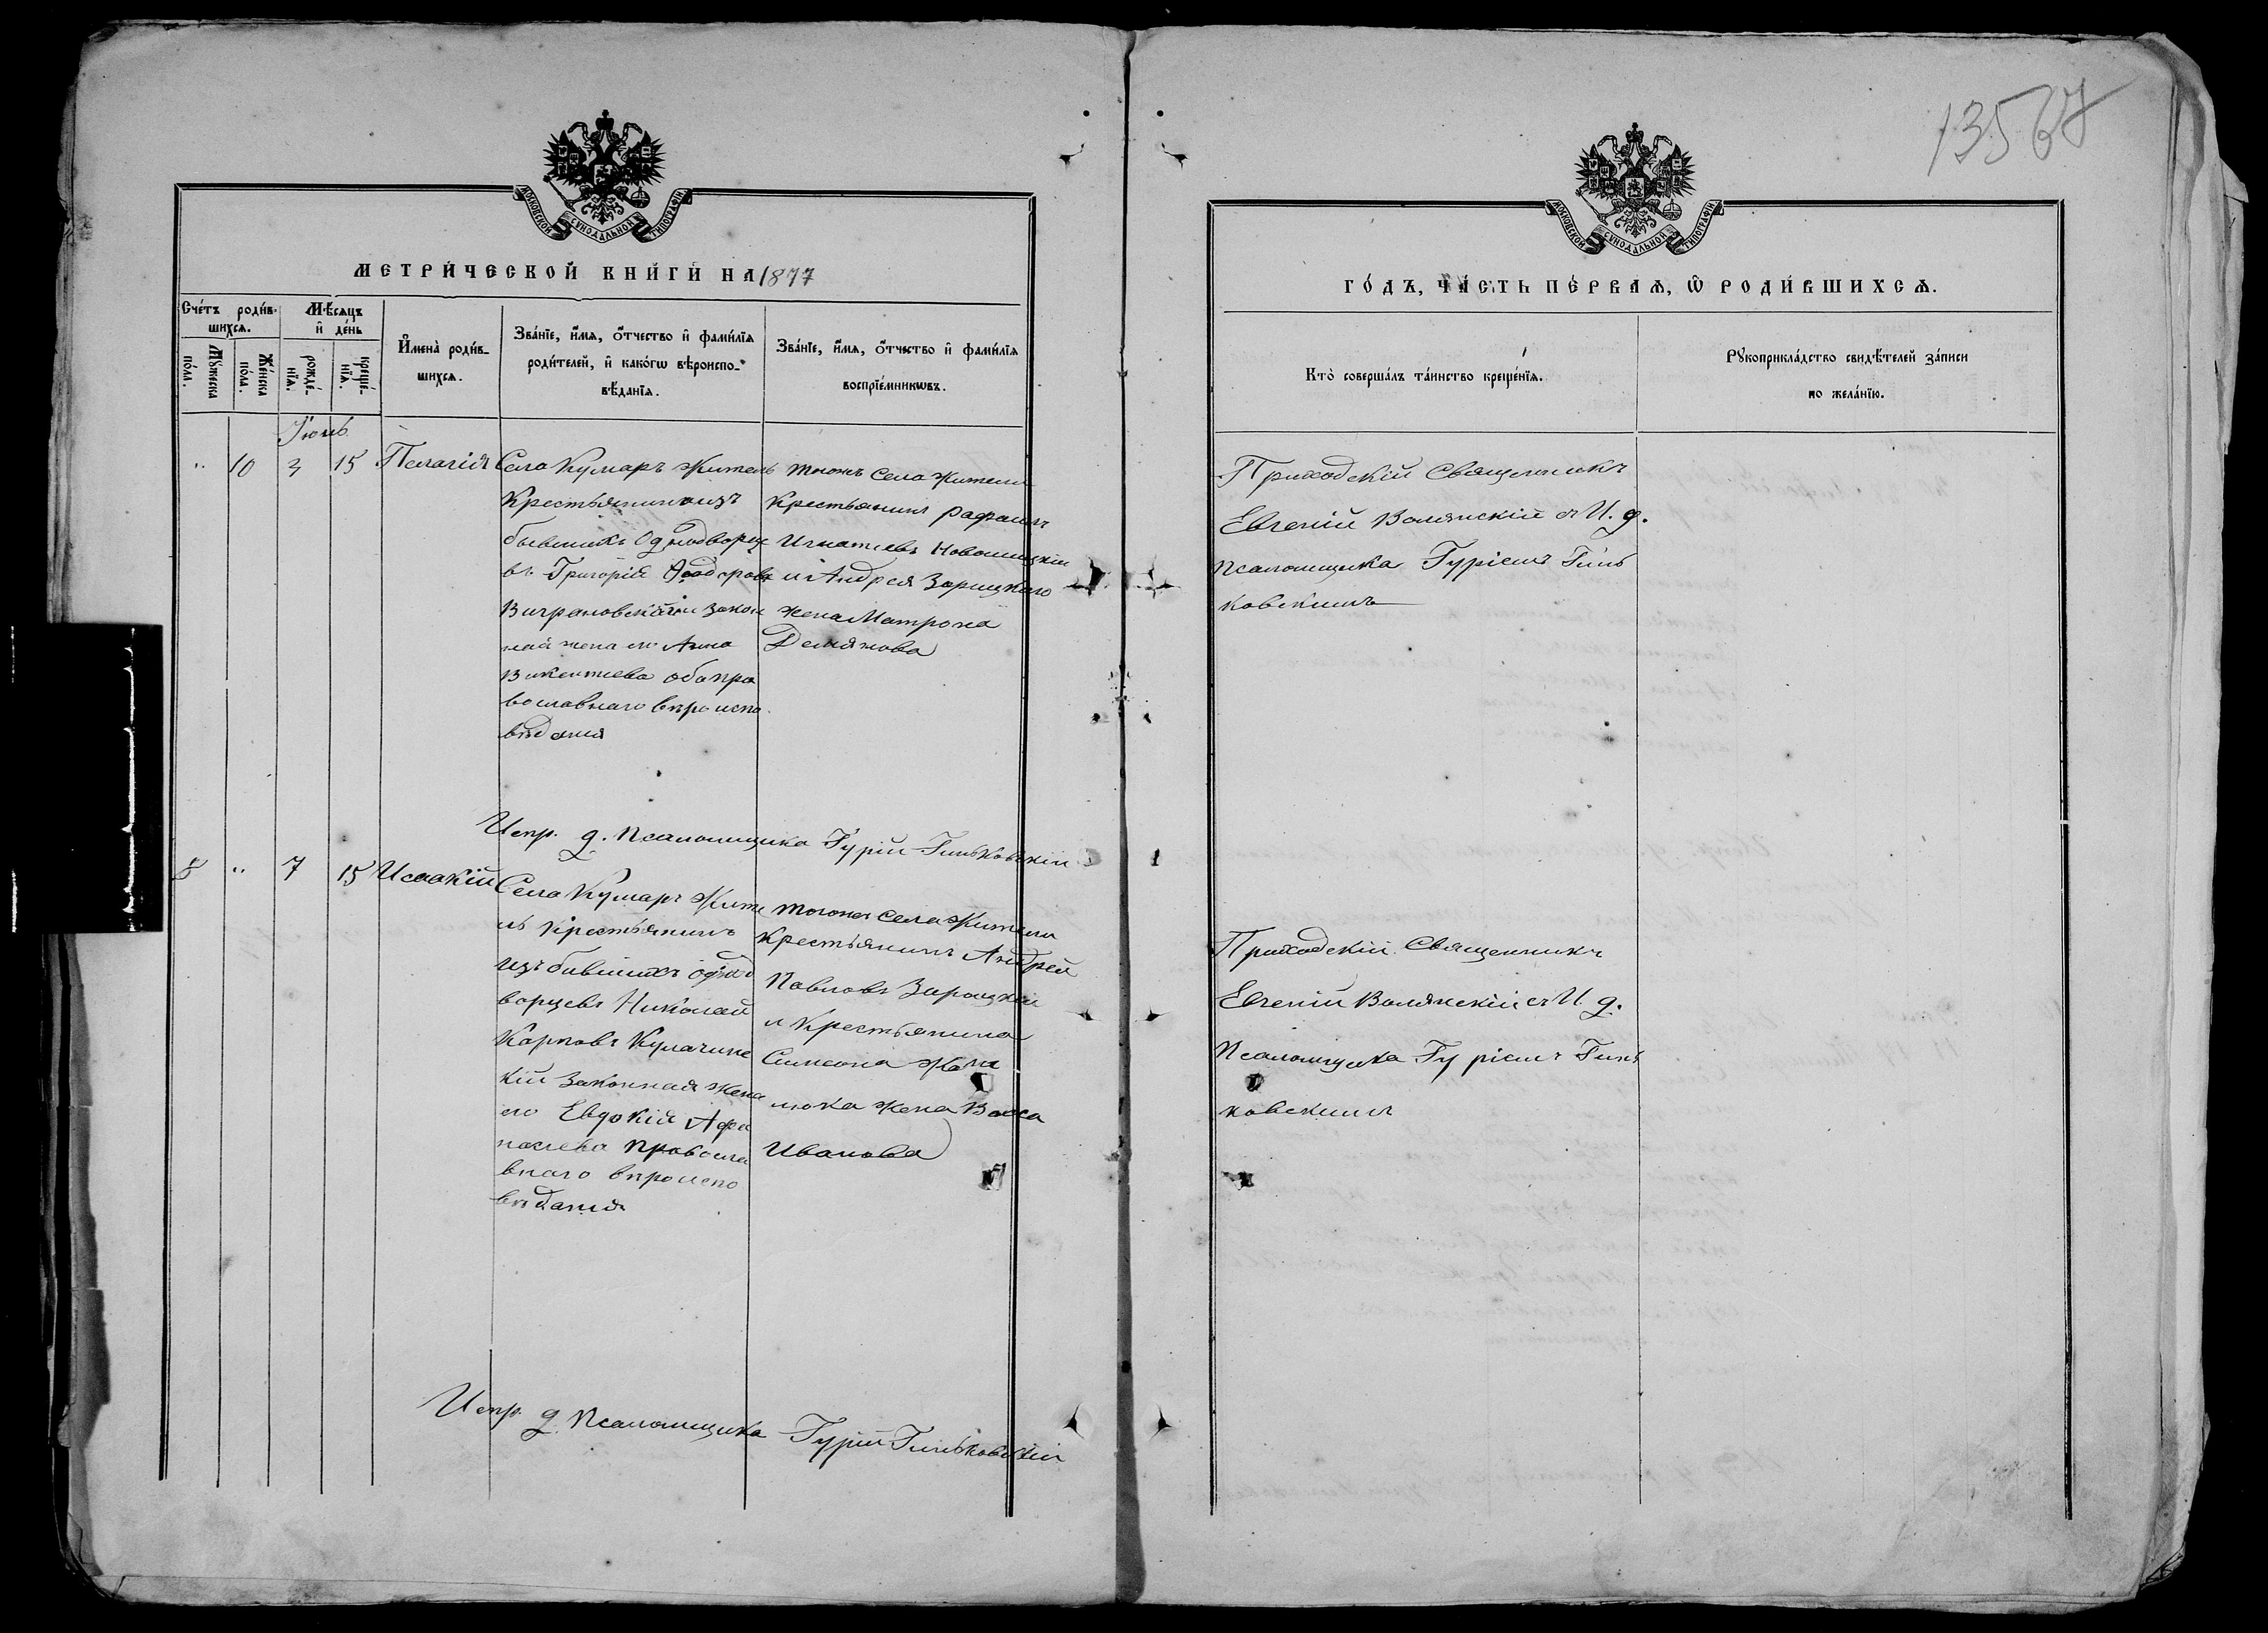 1356
МОСКОВСКОЙ СѴНОДАЛЬНОЙ ТИПОГРАФІИ
МЕТРИ́ЧЕСКОЙ КНИ́ГИ НА 1877
Сче́тъ роди́в-
шихся.
Мѣ́сяцъ
и҆ де́нь
Мꙋ́жеска
по́ла.
Же́нска
по́ла.
рожде́-
нїя.
креще́-
нїя.
И҆мена̀ роди́в-
шихся.
Зва́нїе, и҆́мя, ѻ҆́тчество и҆ фами́лїя
роди́телей, и҆ како́гѡ вѣроиспо-
вѣ́данїя.
Зва́нїе, и҆́мя, ѻ҆́тчество и҆ фами́лїя
воспрїе́мникѡвъ.
Іюнь
" 10 3 15 Пелагія
Села Кумаръ житель
Крестьянинъ изъ
бывшихъ Однодворце
въ Григорій Ѳеодоровъ
Виграновскій и закон
ная жена его Анна
Викентиева оба пра
вославнаго вѣроиспо
вѣданія
тогожъ села жители
Крестьянинъ
Игнатиевъ Новошицкій
и Андрея Зарицкаго
жена Матрона
Демянова
Испр. д. Псаломщика Гурій Гиньковскій
8 " 7 15 Исаакій
Села Кумаръ Жите
ль Крестьянинъ
изъ бившихъ одно
ворцевъ Николай
Карповъ Кулачинс
кій Законная жена
его Евдокія Афа
насиева Православ
внаго вѣроиспо
вѣданія
тогожъ села Жители
Крестьянинъ Андрей
Павловъ Зарицкій
и Крестьянина
Симеона
люка жена Васса
Иванова
Испр. д. Псаломщика Гурій Гиньковскій
МОСКОВСКОЙ СѴНОДАЛЬНОЙ ТИПОГРАФІИ
ГО́ДЪ, ЧА́СТЬ ПЕ́РВАЯ, Ѡ҆ РОДИ́ВШИХСЯ.
Кто̀ соверша́лъ та́инство креще́нїя.
Рꙋкоприкла́дство свидѣ́телей за́писи
по жела́нїю.
Приходскій Священникъ
Евгеній Волянскій съ И. д.
псаломщика Гуріемъ Гинь
ковскимъ
Приходскій Священникъ
Евгеній Волянскій съ И д.
Псаломщика Гуріемъ Гинь
ковскимъ